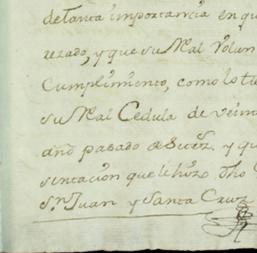 de tanta importancia en qu
rezado, y que su Real Volun
Cumplimiento, como lo tie
su Real Cedula de veint
año pasado de y qu
sentacion que le hizo Dho
Sn. Juan y Santa Cruz